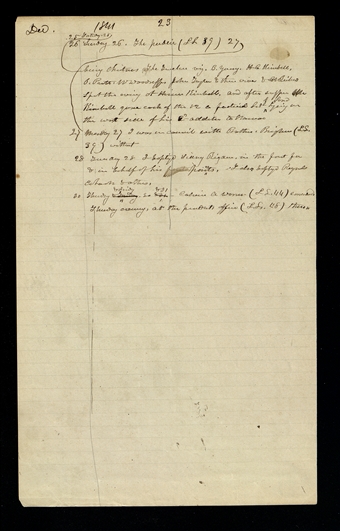 Dec. 1841 23
25 Saturday
26 Sunday 26. The public (S.S. 39) 27,
being Christmas The Twelve viz. B. Young, H. C. Kimball,
O. Pratt W. Woodruff John Taylor & their wives & W. Richards
Spent the evening at Hiram Kimball's, and after supper Mr
Kimball gave each of the 12 a fractional lot of land lying on
the west side of his 2d addition to Nauvoo
27 Monday 27 I was in council with Brother Brigham (S.S.
39) without
28 Tuesday 28 I baptized Sidney Rigdon in the font for
& in behalf of his parents. I also baptized Reynolds
Cahoon & others.
30 Thursday 30 Calvin A Warner (S.S. 44)
Thursday evening, at the president's office (S.S. 45) there.